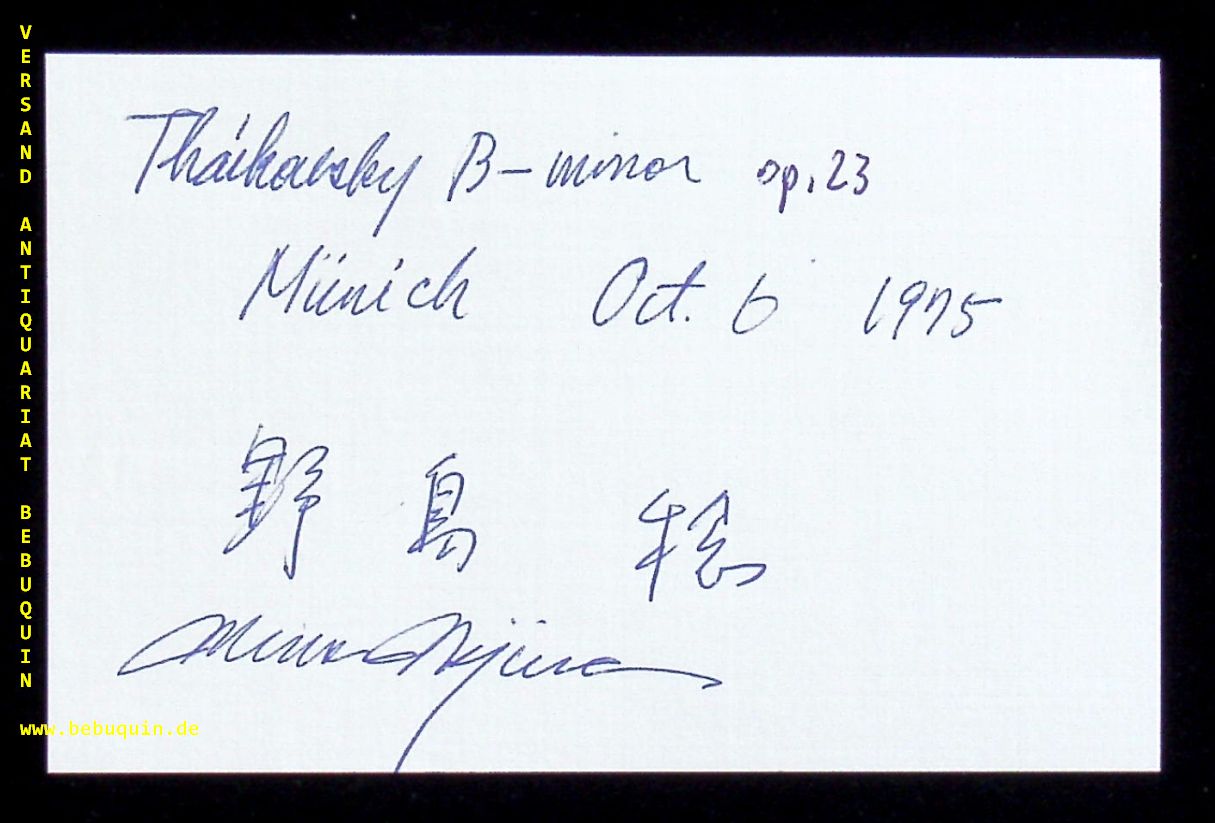 VERSAND ANTIQUARIAT BEBUQUIN
Tháikovsky B-minor op.23
Münich Oct. 6 1975
野島 稔
Minoru Nojima
www.bebuquin.de